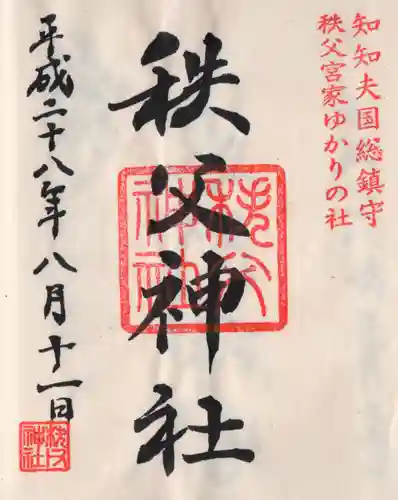 知知夫国総鎮守
秩父宮家ゆかりの社
秩父神社
秩父神社
平成二十八年八月十一日
秩父神社